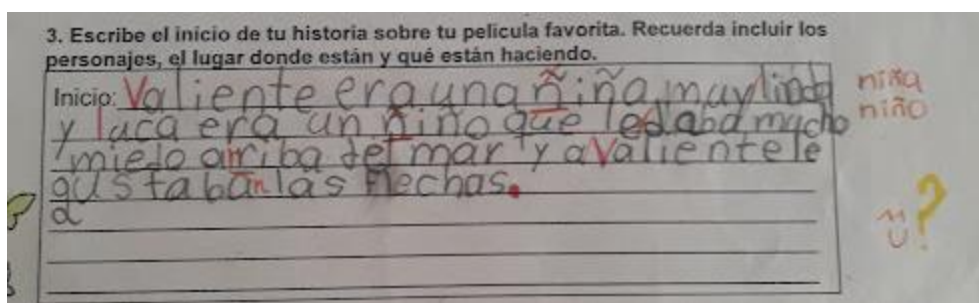 3. Escribe el inicio de tu historia sobre tu película favorita. Recuerda incluir los
personajes, el lugar donde están y qué están haciendo.
Inicio: Valiente era una ñiña muy linda niña
y luca era un ñiño que ledaba mucho niño
miedo arriba del mar y a Valiente le
gustaban las flechas.
a
ü?